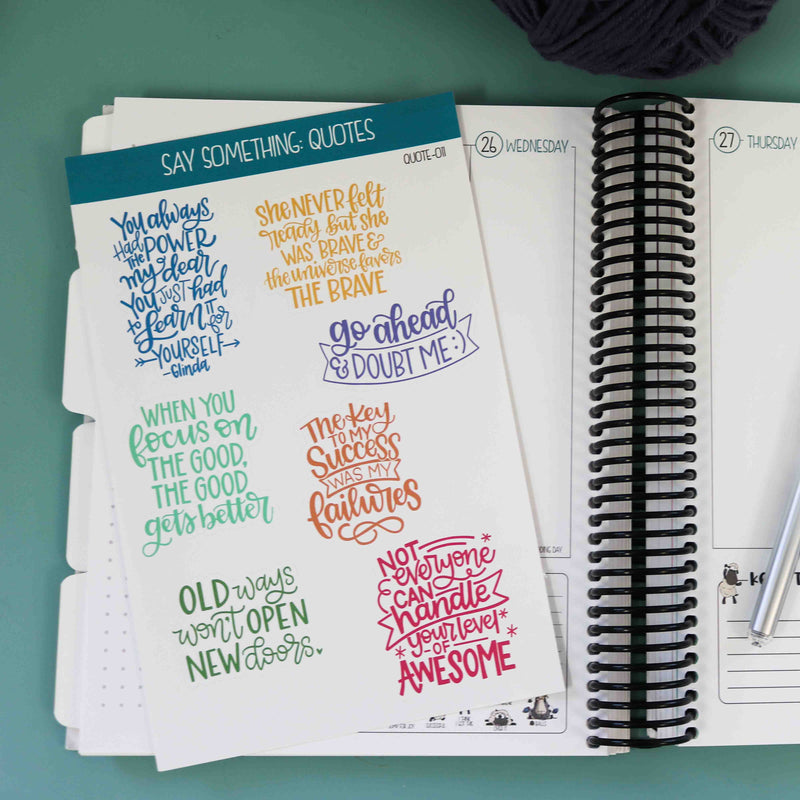 SAY SOMETHING: QUOTES
QUOTE-011
You always
Had THE POWER
my dear
YOU JUST had
to Learn IT for
YOURSELF
-Glinda
She NEVER felt
ready but she
WAS BRAVE &
the universe favors
THE BRAVE
go ahead
& DOUBT ME :)
WHEN YOU
focus on
THE GOOD,
THE GOOD
gets better
The Key
TO MY
Success
WAS MY
failures
OLD ways
won't OPEN
NEW doors.
NOT
everyone
CAN
handle
your level
-OF-
AWESOME
26 WEDNESDAY
27 THURSDAY
DAY